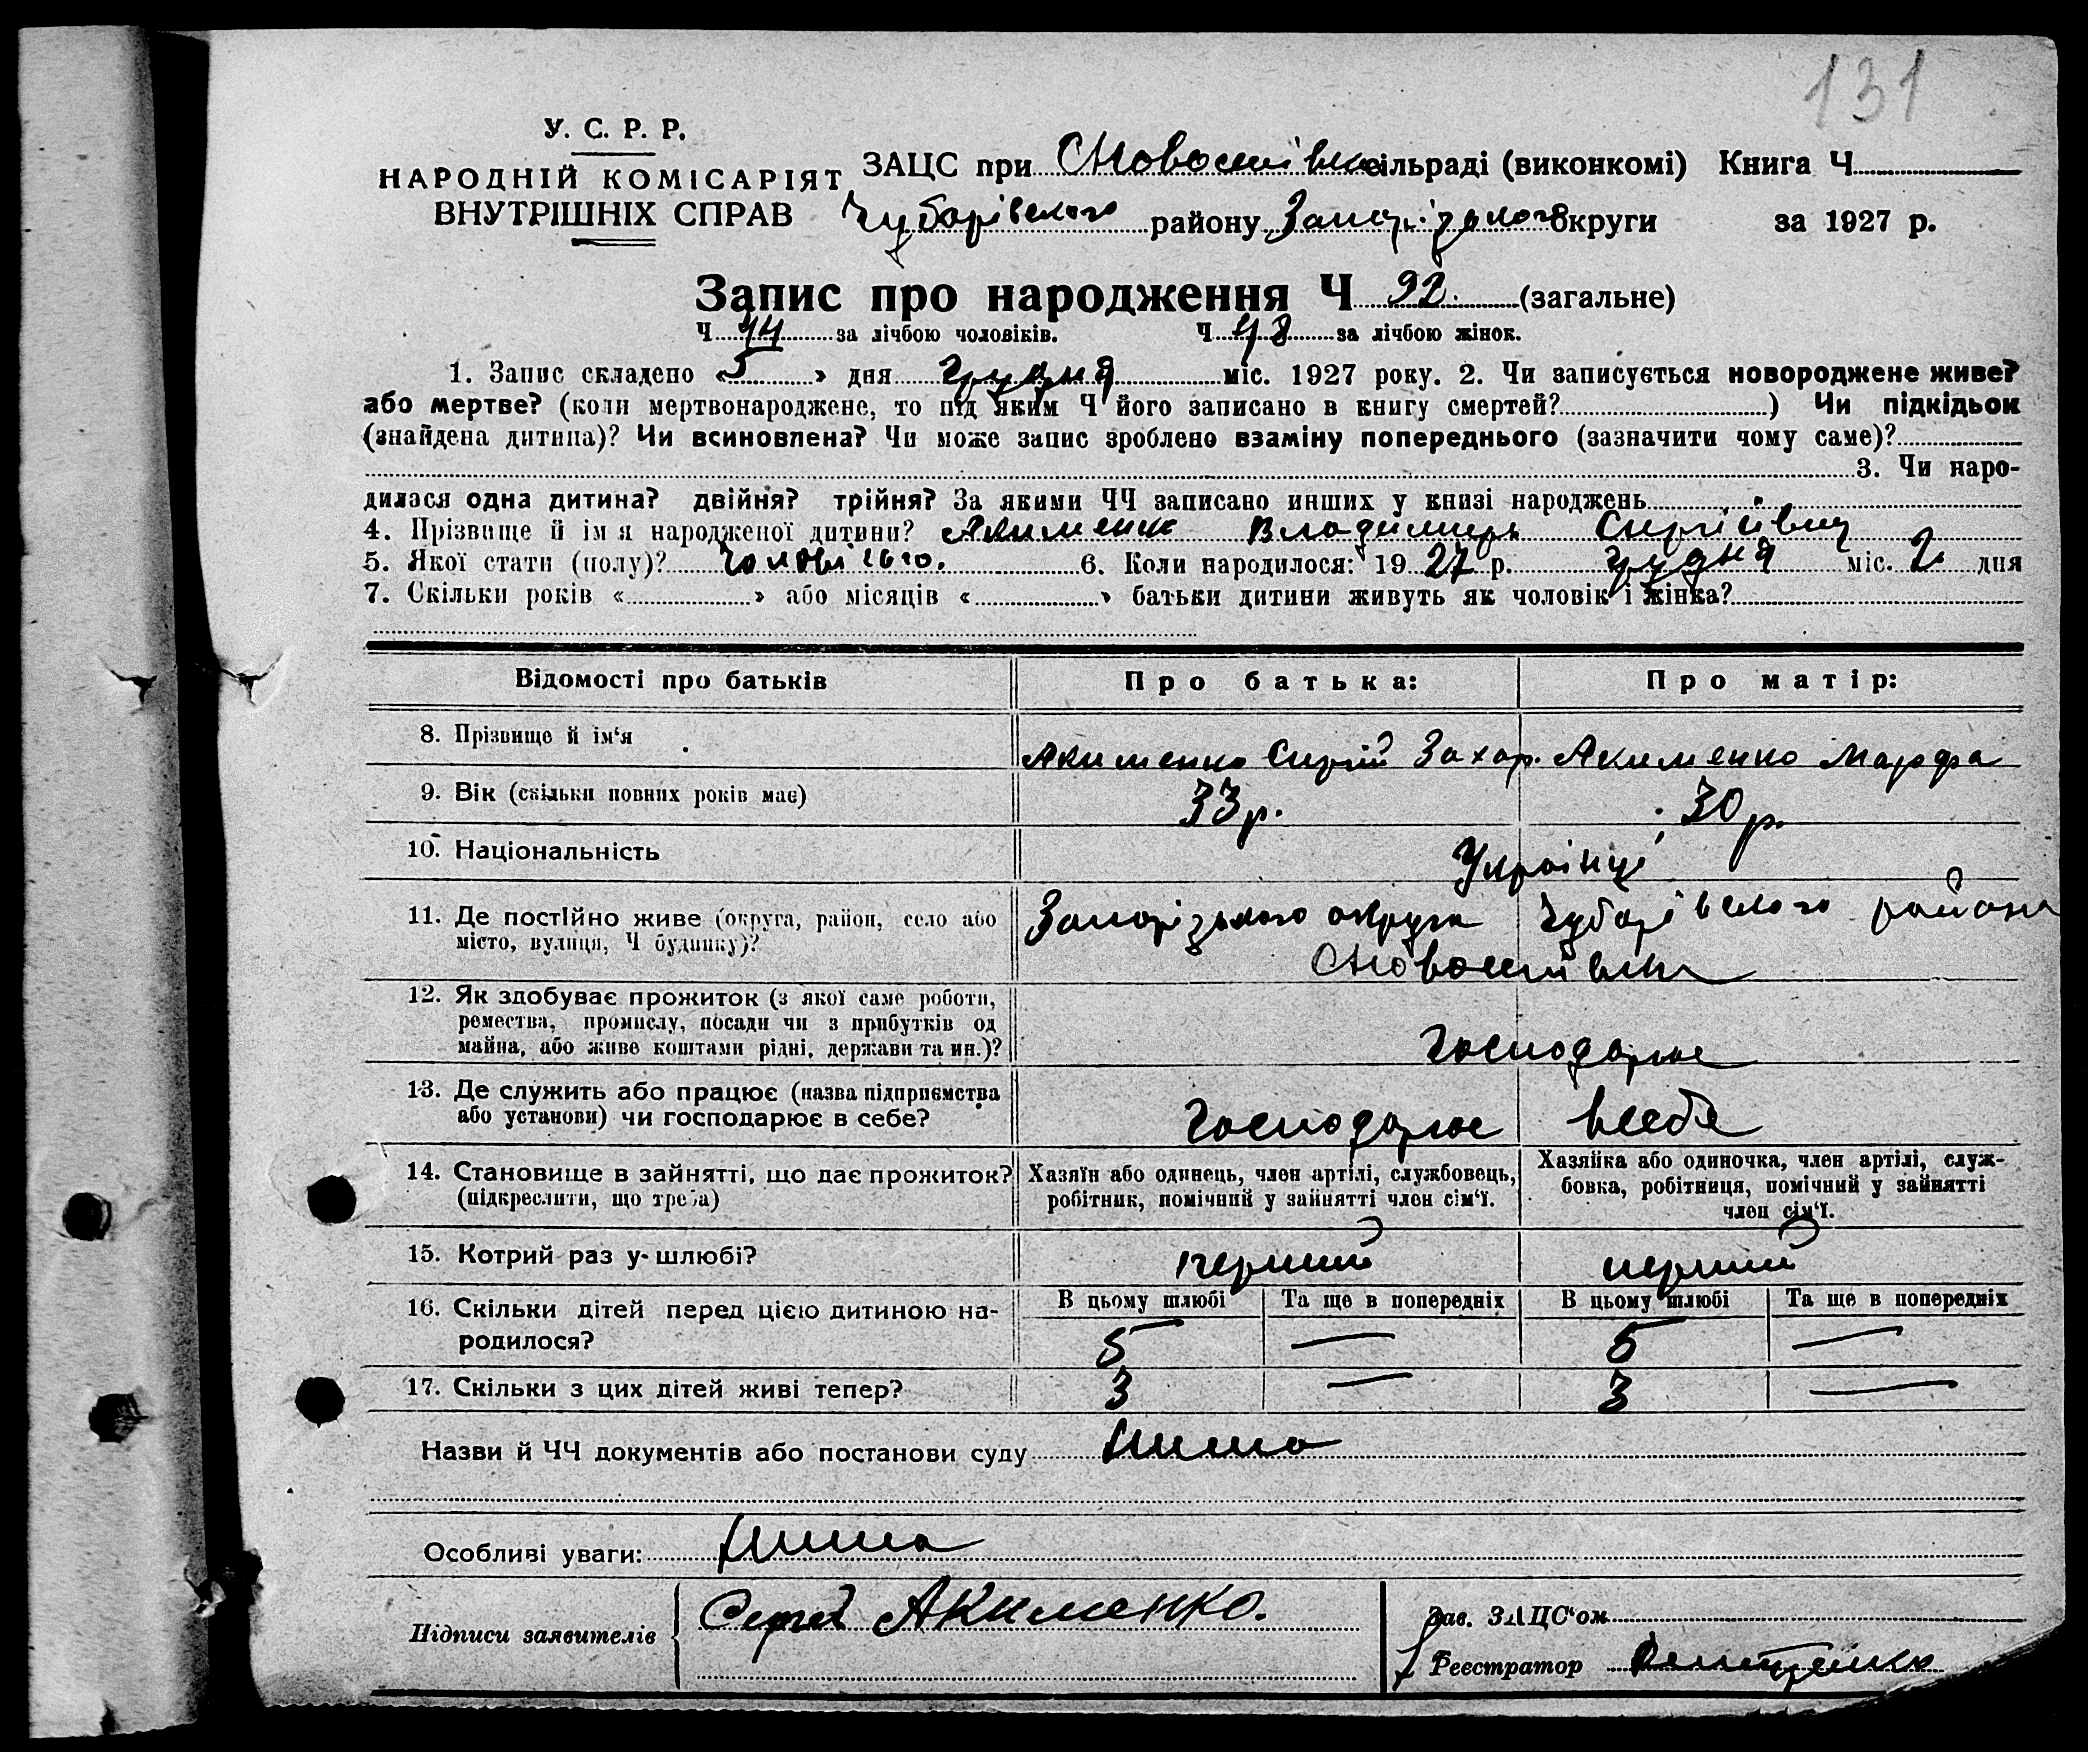 131
У. С. Р. Р.
НАРОДНІЙ КОМІСАРІЯТ
ВНУТРІШНІХ СПРАВ
ЗАЦС при сільраді (виконкомі) Книга Ч
Чубарівського району Запорізького округи за 1927 р.
Запис про народження Ч 92. (загальне)
Ч 44 за лічбою чоловіків. Ч 48 за лічбою жінок.
1. Запис складено «5» дня грудня міс. 1927 року. 2. Чи записується новороджене живе?
або мертве? (коли мертвонароджене, то під яким Ч його записано в книгу смертей?) Чи підкідьок
(знайдена дитина)? Чи всиновлена? Чи може запис зроблено взаміну попереднього (зазначити чому саме)?
3. Чи наро-
дилася одна дитина? двійня? трійня? За якими ЧЧ записано инших у книзі народжень
4. Прізвище й ім я народженої дитини? Акименк Владимиръ
5. Якої стати (полу)? 6. Коли народилося: 1927 р. грудня міс. 2 дня
7. Скільки років « » або місяців « » батьки дитини живуть як чоловік і жінка?
Відомості про батьків Про батька: Про матір:
8. Прізвище й ім'я Акименко Сиргій Захар. Акименко Марфа
9. Вік (скільки повних років має) 33 р. 30 р.
10. Національність Українці
11. Де постійно живе (округа, район, село або Запорізького округа Чубарівского района
місто, вулиця, Ч будинку)?
12. Як здобуває прожиток (з якої саме роботи,
ремества, промислу, посади чи з прибутків од
майна, або живе коштами рідні, держави та ин.)? Господарює
13. Де служить або працює (назва підприємства
або установи) чи господарює в себе? Господарює всебе
14. Становище в зайнятті, що дає прожиток? Хазяїн або одинець, член артілі, службовець, Хазяйка або одиночка, член артілі, служ-
(підкреслити, що треба) робітник, помічний у зайнятті член сім'ї. бовка, робітниця, помічний у зайнятті
член сім'ї.
15. Котрий раз у шлюбі? перший перший
16. Скільки дітей перед цією дитиною на- В цьому шлюбі Та ще в попередніх В цьому шлюбі Та ще в попередніх
родилося? 5 — 5 —
17. Скільки з цих дітей живі тепер? 3 — 3 —
Назви й ЧЧ документів або постанови суду Нима
Особливі уваги: Нима
Підписи заявителів Сергей Акименко.
Зав. ЗАЦС'ом
Реєстратор